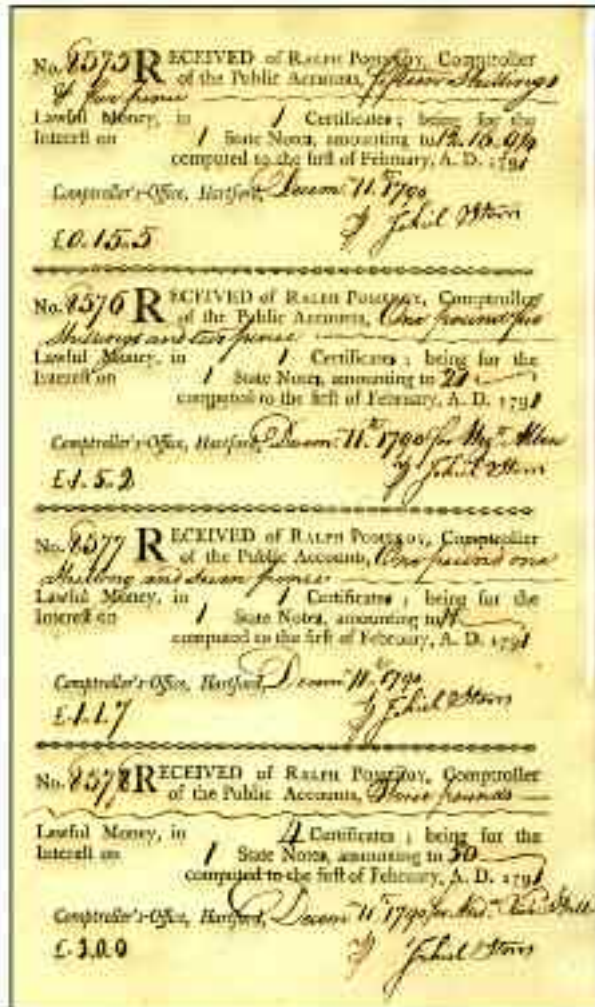 No. 8575 RECEIVED of RALPH POMEROY, Comptroller
of the Public Accounts, fifteen Shillings
& five pence
Lawful Money, in 1 Certificates; being for the
Interest on 1 State Notes, amounting to 12.16.
computed to the first of February, A. D. 1791
Comptroller's-Office, Hartford, Decem 11th 1790
£0.15.5
No. 8576 RECEIVED of RALPH POMEROY, Comptroller
of the Public Accounts, One pound five
Shillings and two pence
Lawful Money, in 1 Certificates; being for the
Interest on 1 State Notes, amounting to 21
computed to the first of February, A. D. 1791
Comptroller's-Office, Hartford, Decem 11th 1790 for
£1.5.2
No. 8577 RECEIVED of RALPH POMEROY, Comptroller
of the Public Accounts, One pound one
Shilling and seven pence
Lawful Money, in 1 Certificates; being for the
Interest on 1 State Notes, amounting to
computed to the first of February, A. D. 1791
Comptroller's-Office, Hartford, Decem 11th 1790
£1.1.7
No. 8578 RECEIVED of RALPH POMEROY, Comptroller
of the Public Accounts, Three pounds
Lawful Money, in 4 Certificates; being for the
Interest on 1 State Notes, amounting to 50
computed to the first of February, A. D. 1791
Comptroller's-Office, Hartford, Decem 11th 1790 for
£3.0.0